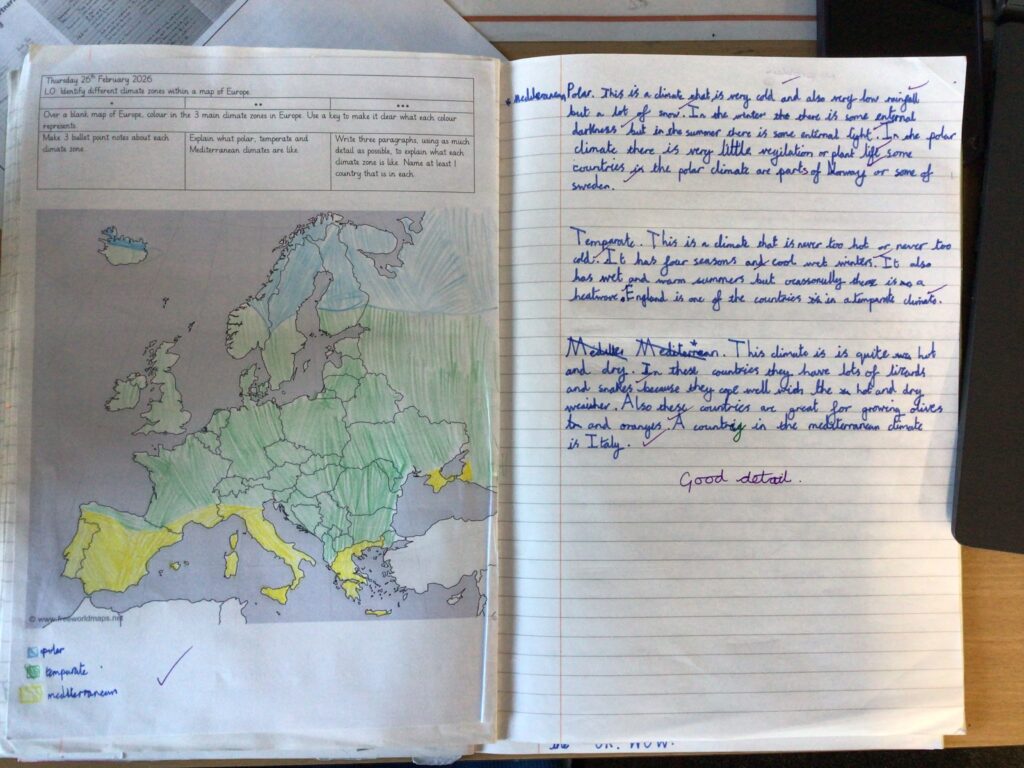 Thursday 26th February 2026
LO: Identify different climate zones within a map of Europe.
*
**
***
Over a blank map of Europe, colour in the 3 main climate zones in Europe. Use a key to make it clear what each colour
represents.
Make 3 bullet point notes about each
climate zone.
Explain what polar, temperate and
Mediterranean climates are like.
Write three paragraphs, using as much
detail as possible, to explain what each
climate zone is like. Name at least 1
country that is in each.
© www.freeworldmaps.net
polar
temparate
mediterranean
* Mediterranean
Polar. This is a climate that is very cold and also very low rainfall
but a lot of snow. In the winter there is some enternal
darkness but in the summer there is some enternal light. In the polar
climate there is very little vegitation or plant life some
countries in the polar climate are parts of Norway or some of
sweden.
Temparate. This is a climate that is never too hot or never too
cold. It has four seasons and cool wet winters. It also
has wet and warm summers but ocassonully there is a
heatwave. England is one of the countries in a temparate climate.
Mediterrean. This climate is is quite hot
and dry. In these countries they have lots of lizards
and snakes because they cope well with the hot and dry
weather. Also these countries are great for growing olives
and oranges. A country in the mediterranean climate
is Italy.
Good detail.
the UK. WOW.